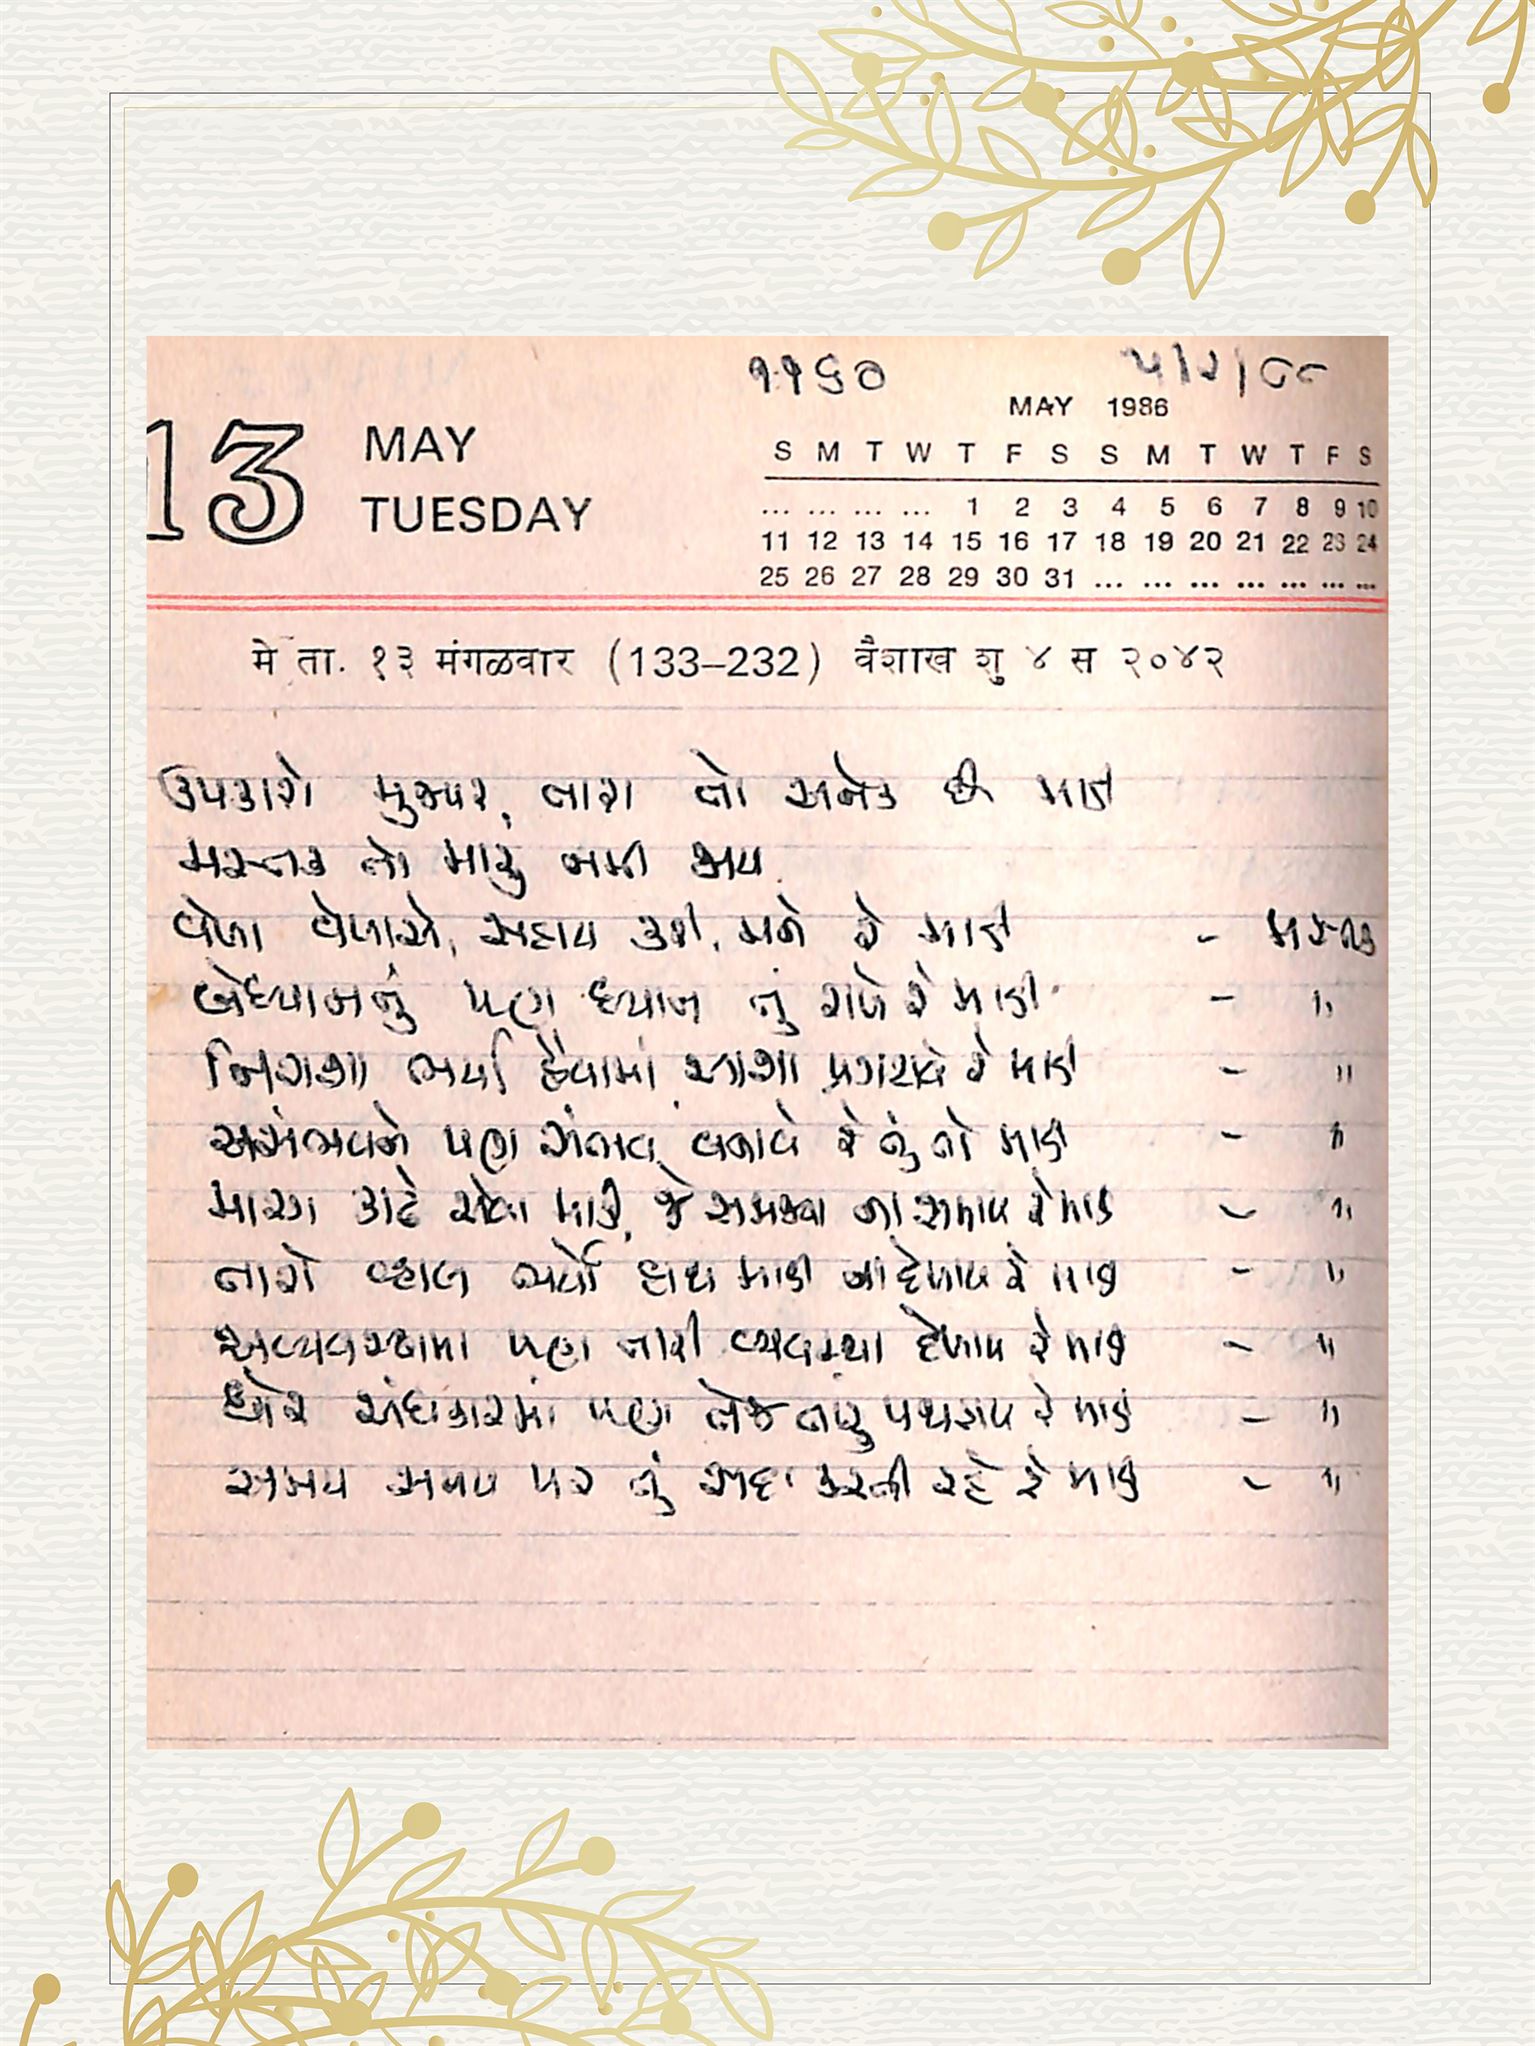 ૧૧૬૦ ૫/૨/૮૮
MAY 1986
13 MAY
TUESDAY
S M T W T F S S M T W T F S
... ... ... ... 1 2 3 4 5 6 7 8 9 10
11 12 13 14 15 16 17 18 19 20 21 22 23 24
25 26 27 28 29 30 31 ... ... ... ... ... ... ...
मे ता. १३ मंगळवार (133–232) वैशाख शु ४ स २०४२
ઉપકારો મુજપર, તારા તો અનેક છે માડી
મસ્તક તો મારું નમી જાય
વેળા વેળાએ, સહાય કરી, મને રે માડી - મસ્તક
બેધ્યાનનું પણ ધ્યાન તું રાખે રે માડી - "
નિરાશા ભર્યા હૈયામાં આશા પ્રગટાવે રે માડી - "
અસંભવને પણ સંભવ બનાવે રે તું તો માડી - "
મારગ કાઢે એવા માડી, જે સમજ્યા ના સમજાય રે માડી - "
તારો વ્હાલ ભર્યો હાથ માડી ના દેખાય રે માડી - "
અવ્યવસ્થામાં પણ તારી વ્યવસ્થા દેખાય રે માડી - "
ઘોર અંધકારમાં પણ તેજ તારું પથરાય રે માડી - "
સમય સમય પર તું સદા કરતી રહે રે માડી - "